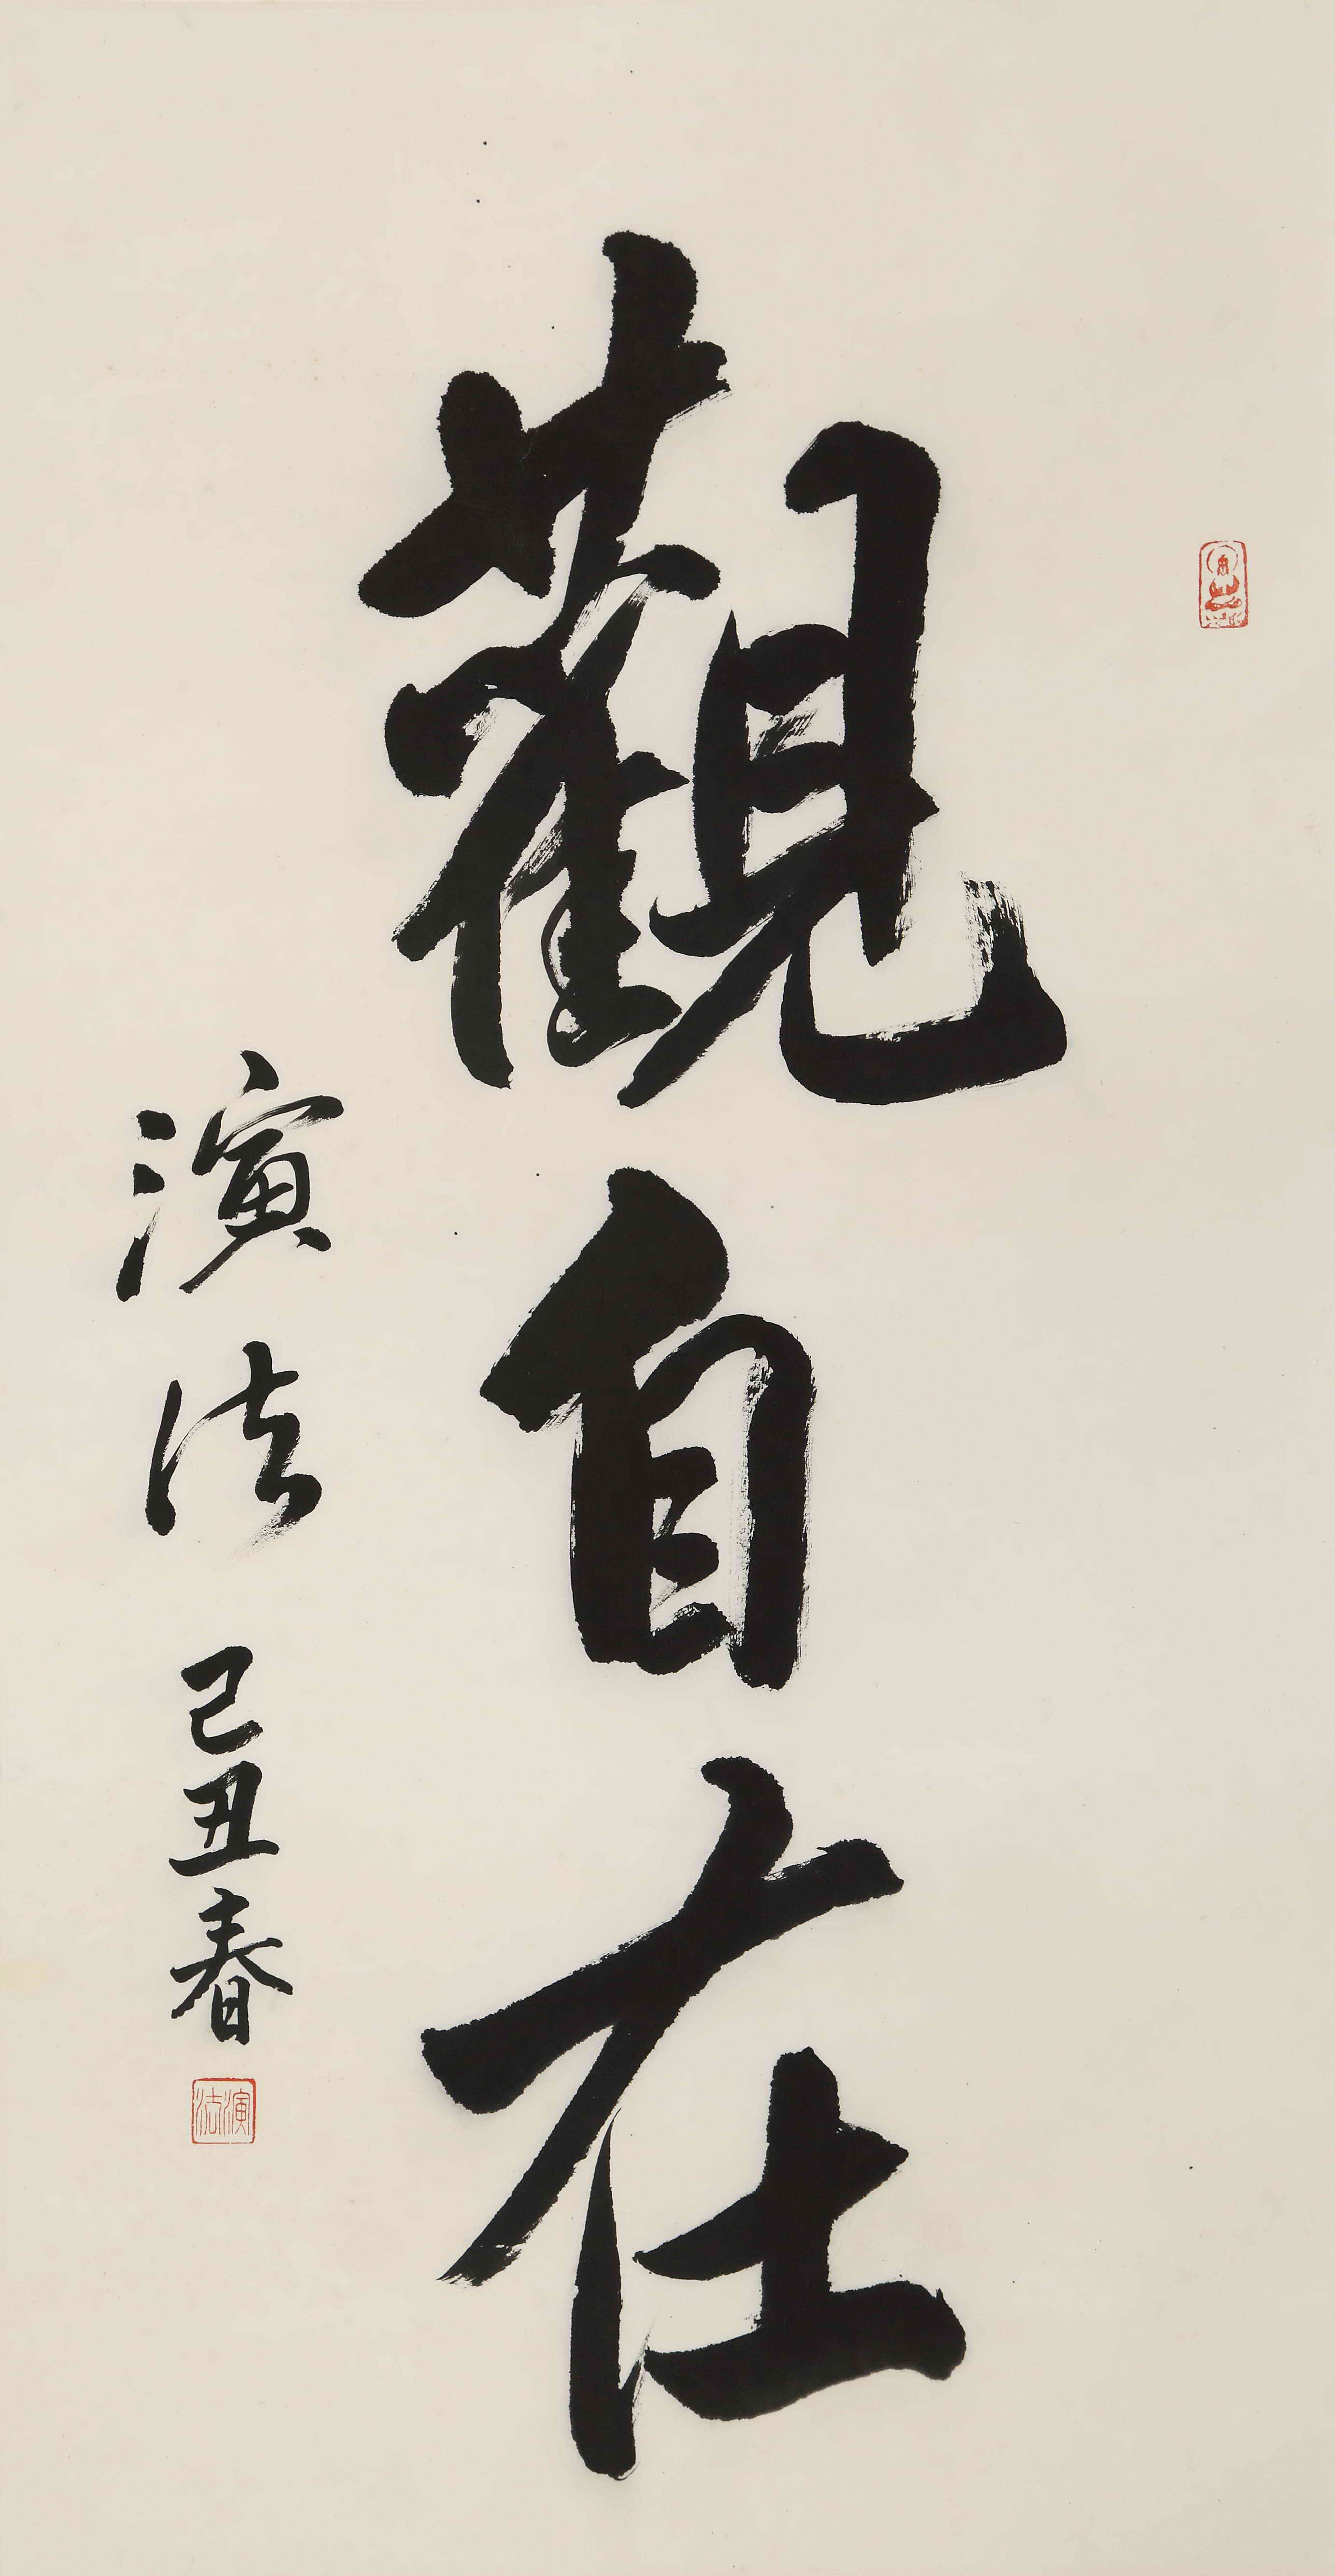 觀自在
演法 己丑春
演法